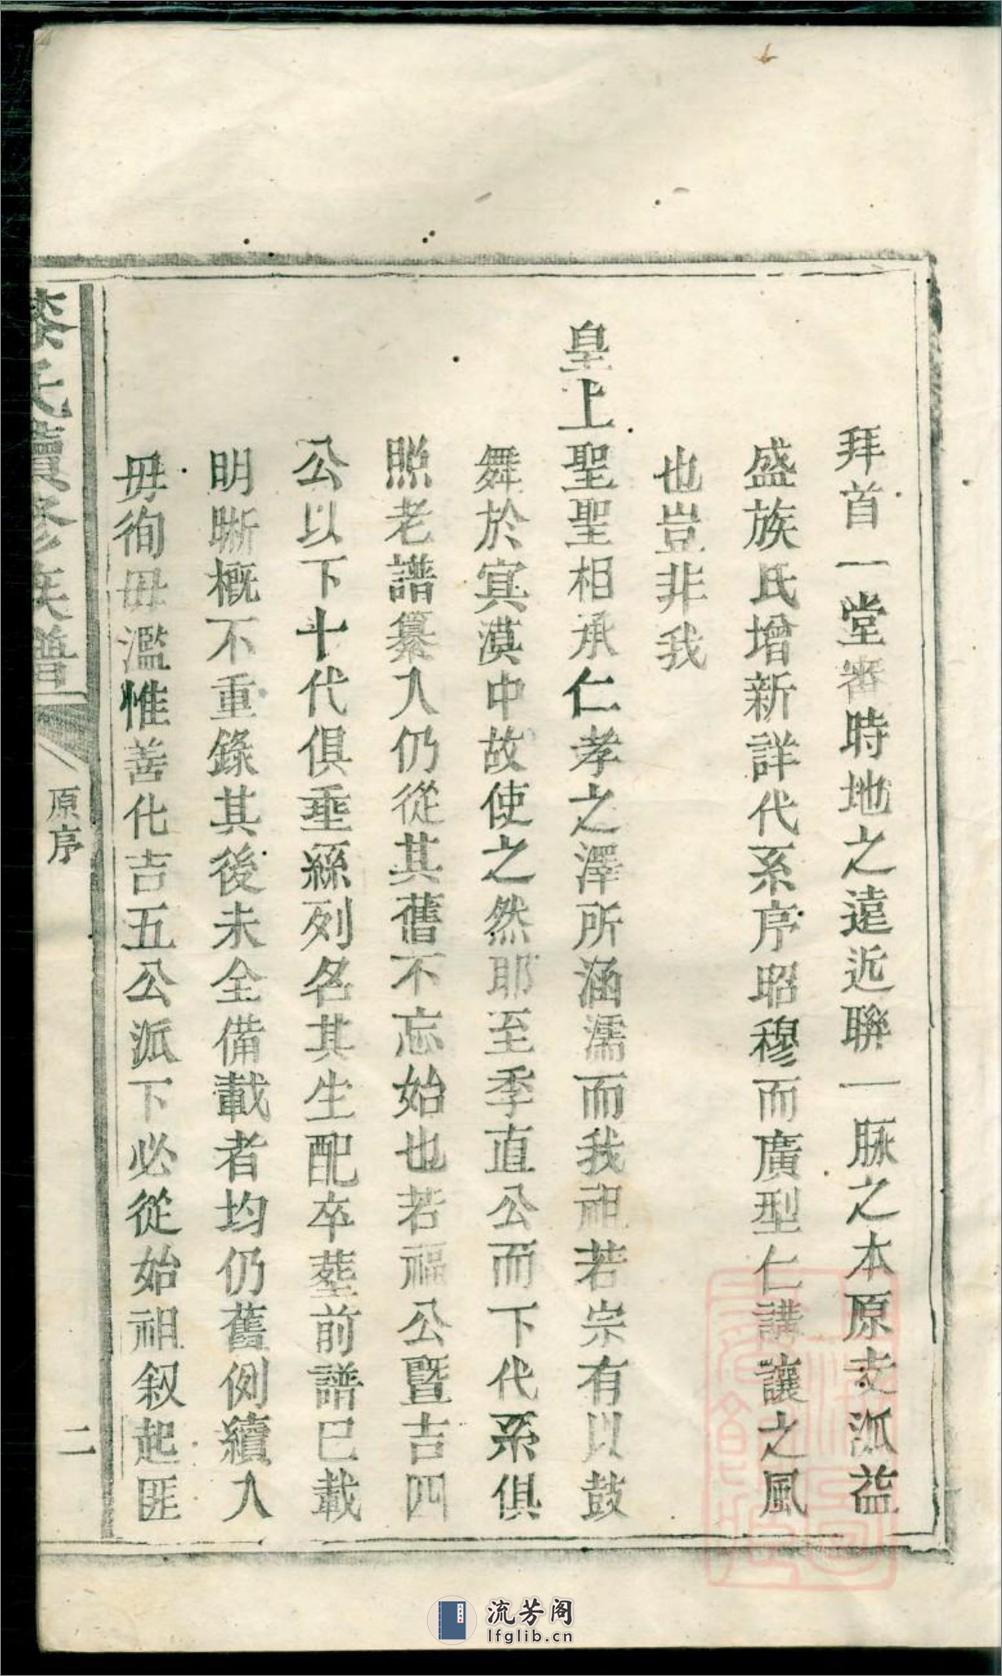 拜首一堂審時地之遠近聯一脈之本原支派益
盛族氏增新詳代系序昭穆而廣型仁講讓之風
也豈非我
皇上聖聖相承仁孝之澤所涵濡而我祖若宗有以鼓
舞於寞漠中故使之然耶至季直公而下代系俱
照老譜纂入仍從其舊不忘始也若福公暨吉四
公以下十代俱垂絲列名其生配卒塟前譜已載
明晰概不重錄其後未全備載者均仍舊例續入
毋徇毋濫惟善化吉五公派下必從始祖叙起匪
氏續修族譜
原序
二
流芳阁
lfglib.cn